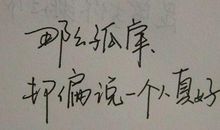 那么孤寂
却偏说一个人真好